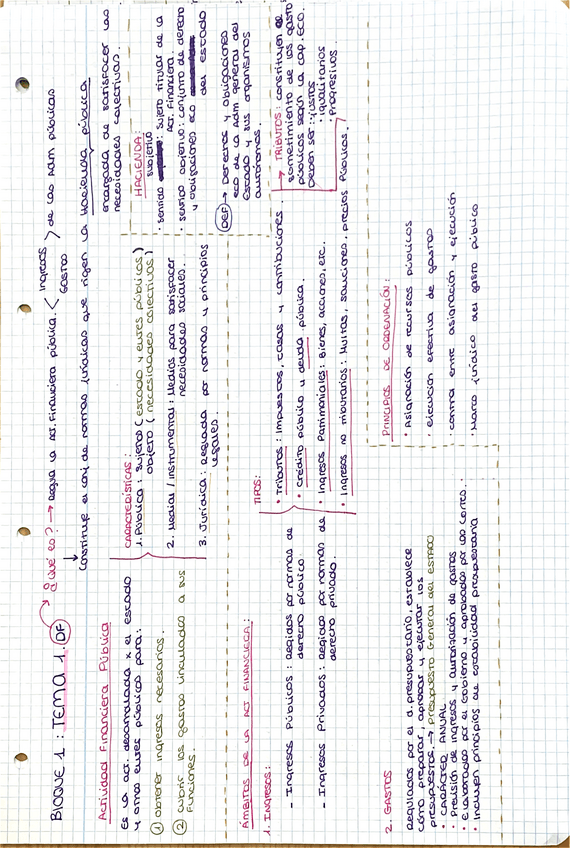 BLOQUE 1 : TEMA 1. DF → ¿Qué es? → Regula la act. financiera pública < ingresos
gastos > de las Adm públicas
↓
Constituye el conj de normas jurídicas que rigen la Hacienda pública
encargada de satisfacer las
necesidades colectivas.
Actividad Financiera Pública
Es la act. desarrollada x el estado
y otros entes públicos para:
① obtener ingresos necesarios.
② cubrir los gastos vinculados a sus
funciones.
CARACTERÍSTICAS:
1. Pública : sujetos (estado y entes públicos)
objeto (necesidades colectivas)
2. Medial / instrumental : Medios para satisfacer
necesidades sociales.
3. Jurídica : Regulada por normas y principios
legales.
HACIENDA:
subjetivo
· sentido : sujeto titular de la
act. Financiera.
· sentido objetivo : conjunto de derecho
y obligaciones eco
del estado
DEF → Derechos y obligaciones
eco de la adm general del
Estado y sus organismos
autónomos.
ÁMBITOS DE LA ACT FINANCIERA :
1. INGRESOS :
- Ingresos Públicos : Regidos por normas de
derecho público
- Ingresos Privados : Regidos por normas de
derecho privado.
TIPOS:
• Tributos : Impuestos, tasas y contribuciones.
• Crédito público y deuda pública.
• Ingresos Patrimoniales : Bienes, acciones, etc.
• Ingresos no tributarios : Multas, sanciones, precios Públicos.
→ TRIBUTOS : constituyen el
sometimiento de los gastos
públicos según la cap. eco.
Deben ser : · justos
· igualitarios
· Progresivos.
2. GASTOS
Regulados por el d. presupuestario, establece
cómo preparar, aprobar y ejecutar los
presupuestos. → Presupuesto General del ESTADO
• CARÁCTER ANUAL
• Previsión de ingresos y autorización de gastos
• Elaborados por el Gobierno y aprobados por las Cortes.
• Incluyen principios de estabilidad presupuestaria
PRINCIPIOS DE ORDENACIÓN :
• Asignación de recursos públicos
· Ejecución efectiva de gastos
· Control entre asignación y ejecución
· Marco jurídico del gasto público